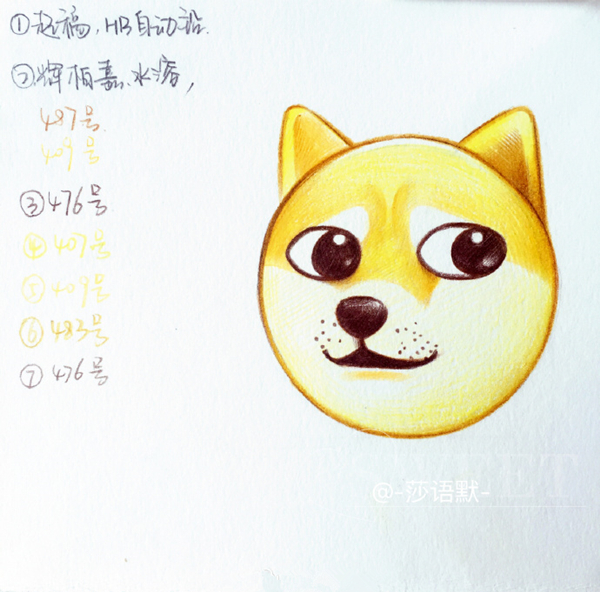 ①起稿,HB自动铅.
②辉柏嘉.水溶,
487号
409号
③476号
④407号
⑤409号
⑥483号
⑦476号
@-莎语默-